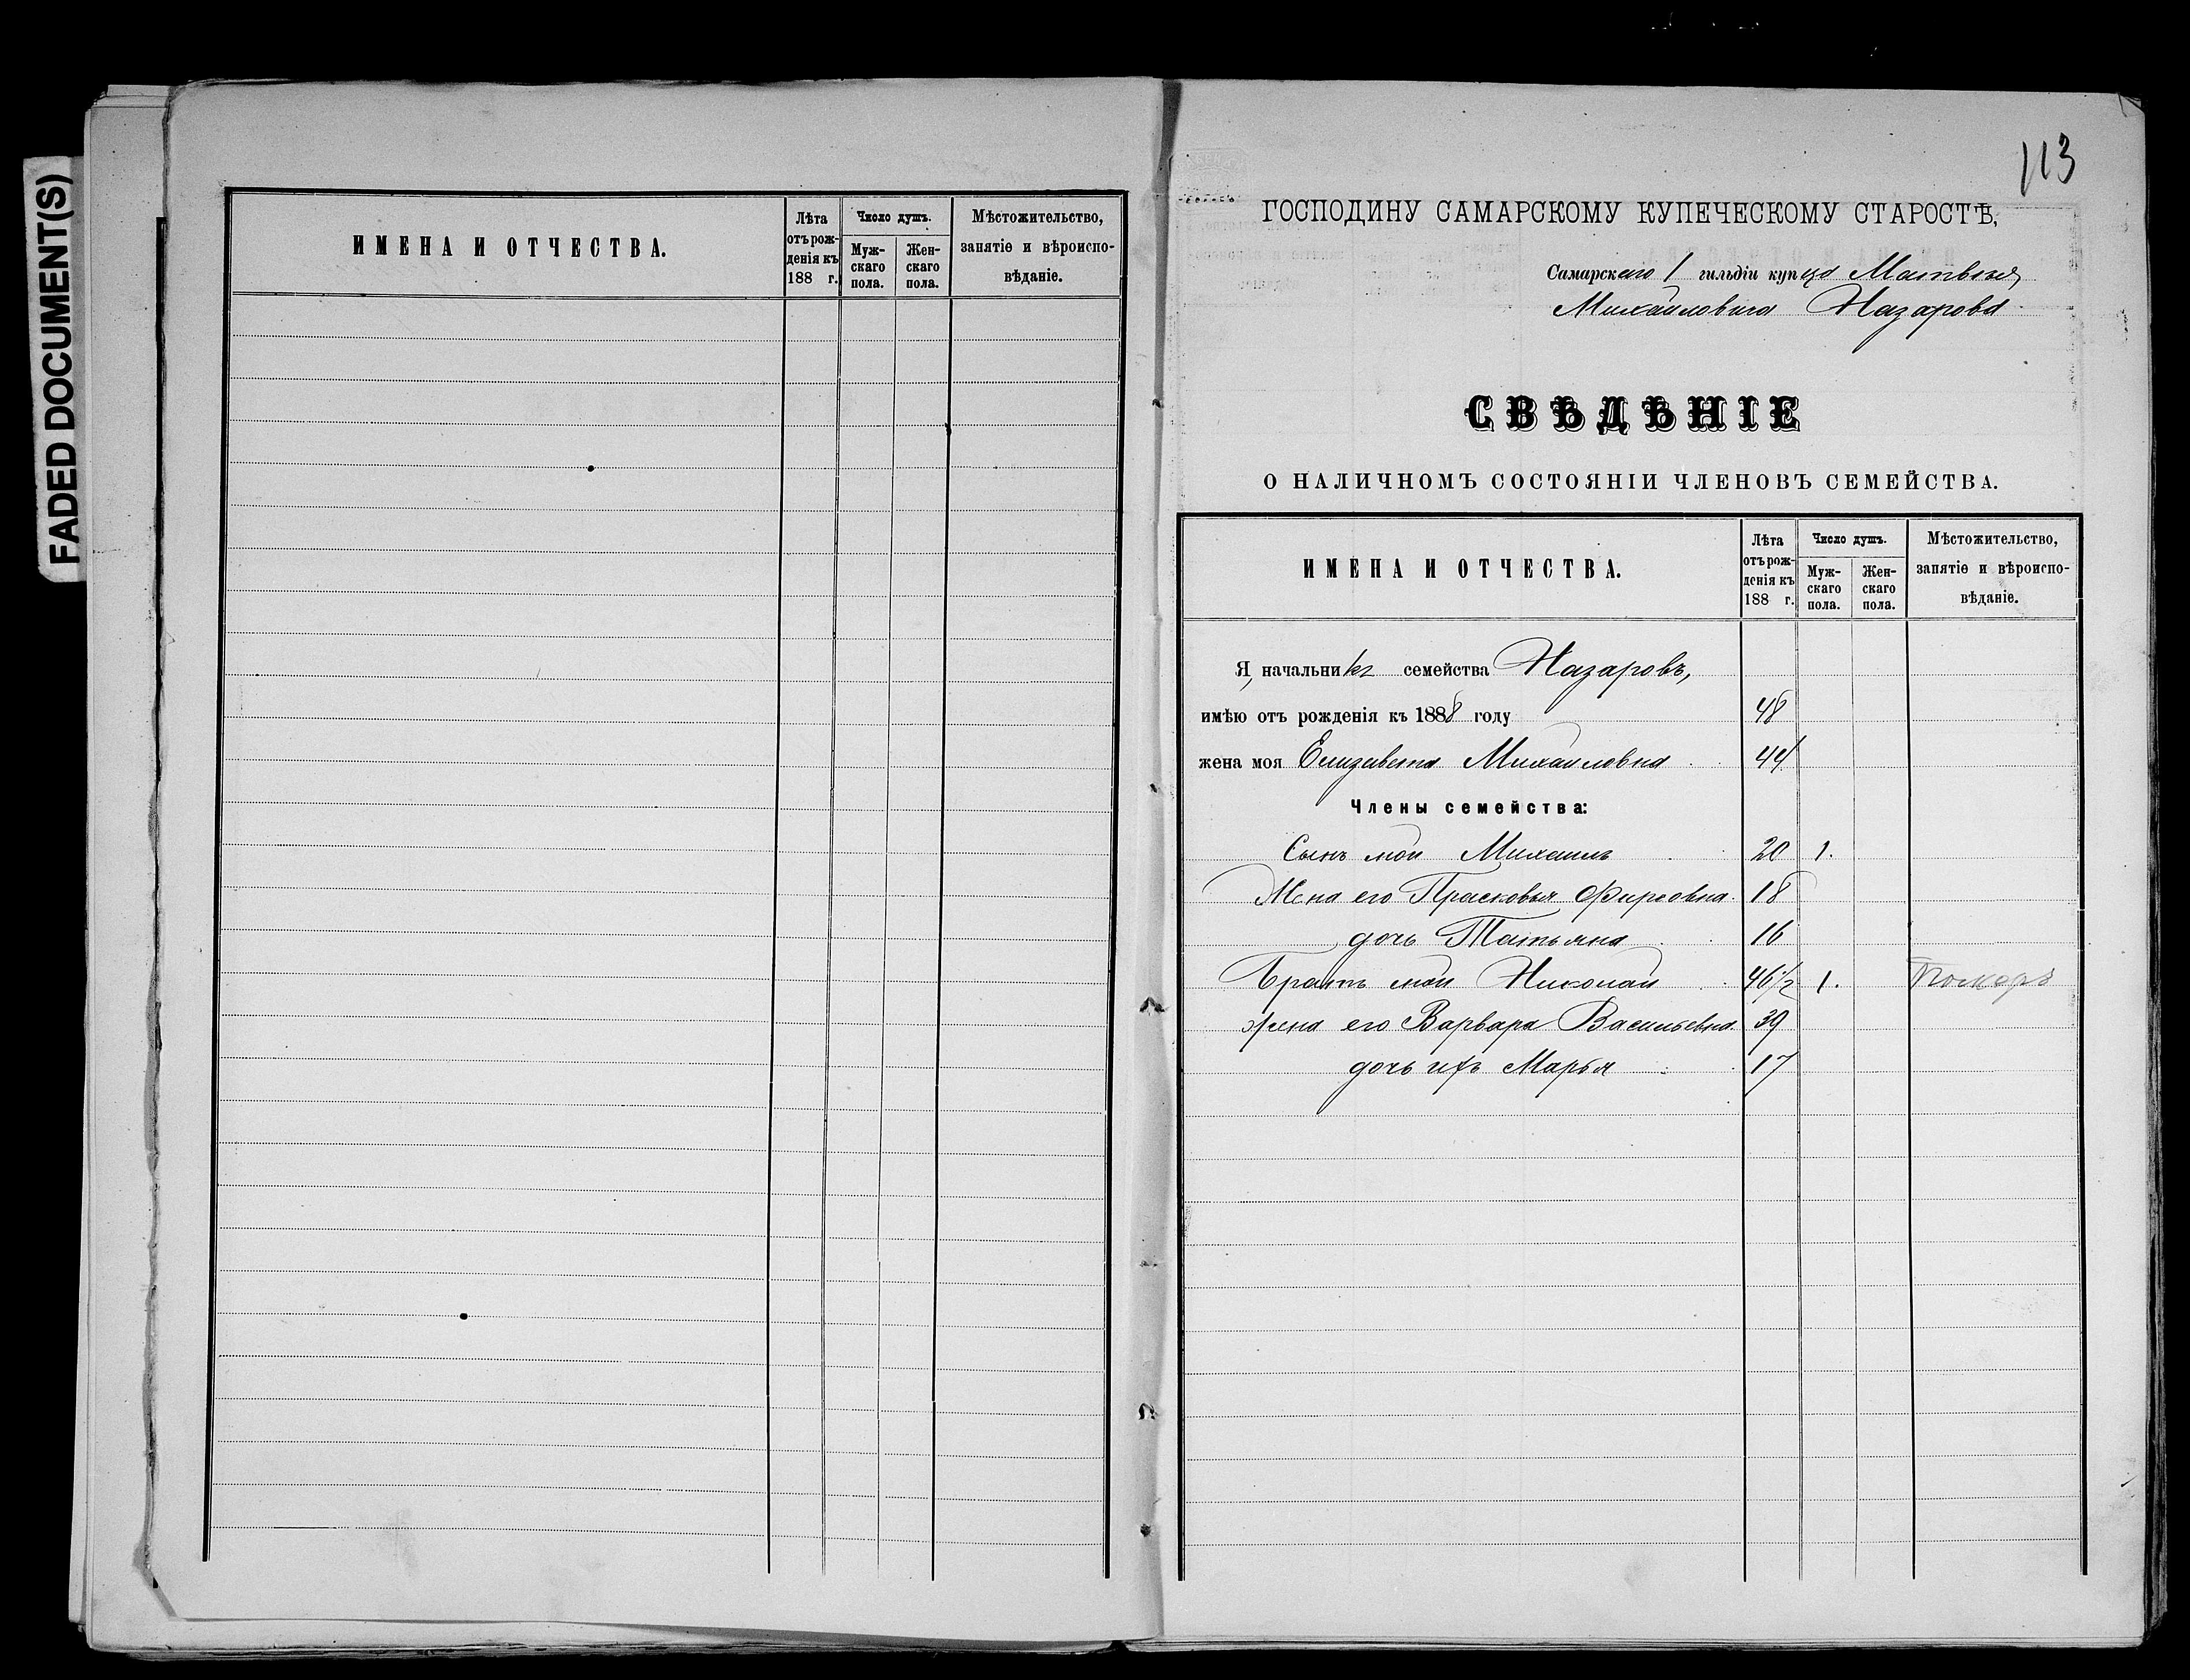 FADED DOCUMENT(S)
ИМЕНА И ОТЧЕСТВА.
Лѣта отъ рожденія къ 188 г.
Число душъ.
Мужскаго пола.
Женскаго пола.
Мѣстожительство, занятіе и вѣроисповѣданіе.
113
ГОСПОДИНУ САМАРСКОМУ КУПЕЧЕСКОМУ СТАРОСТѢ,
Самарскаго 1 гильдіи купца Матвѣя
Михайловича Назарова
СВѢДѢНІЕ
О НАЛИЧНОМЪ СОСТОЯНІИ ЧЛЕНОВЪ СЕМЕЙСТВА.
ИМЕНА И ОТЧЕСТВА.
Лѣта отъ рожденія къ 188 г.
Число душъ.
Мужскаго пола.
Женскаго пола.
Мѣстожительство, занятіе и вѣроисповѣданіе.
Я, начальникъ семейства Назаровъ,
имѣю отъ рожденія къ 1888 году 48
жена моя Елизавета Михайловна 44
Члены семейства:
Сынъ мой Михаилъ 20 1.
Жена его Прасковья Фирсовна 18
дочь Татьяна 16
Братъ мой Николай 46 1/2 1.
жена его Варвара Васильевна 39
дочь ихъ Марья 17